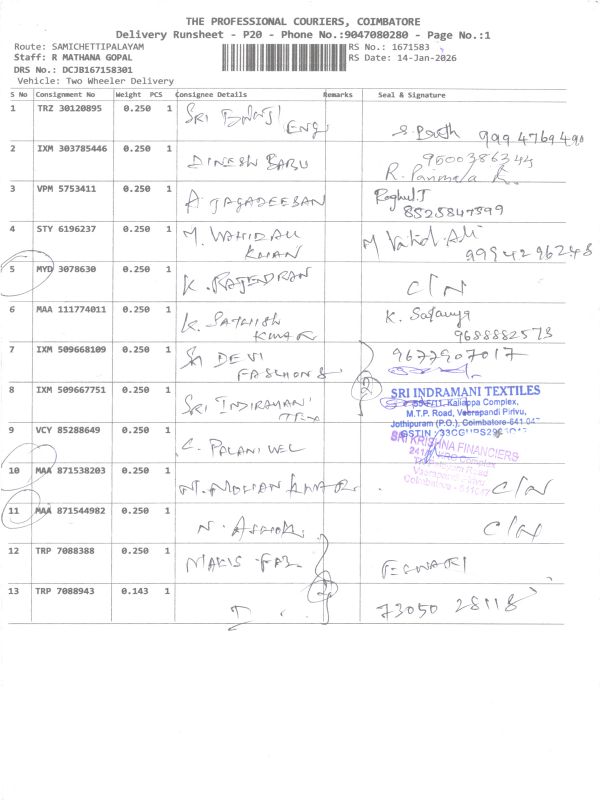 THE PROFESSIONAL COURIERS, COIMBATORE
Delivery Runsheet - P20 - Phone No.:9047080280 - Page No.:1
Route: SAMICHETTIPALAYAM RS No.: 1671583
Staff: R MATHANA GOPAL RS Date: 14-Jan-2026
DRS No.: DCJB167158301
Vehicle: Two Wheeler Delivery
S No Consignment No Weight PCS Consignee Details Remarks Seal & Signature
1 TRZ 30120895 0.250 1 SRI BALAJI
ENG 9994769490
2 IXM 303785446 0.250 1 DINESH BABU 9600386344
R. Parimala
3 VPM 5753411 0.250 1 A JAGADEESAN Raghul.T
8525847399
4 STY 6196237 0.250 1 M. WAHIDALI
KHAN M Vahid. Ali
9994296248
5 MYD 3078630 0.250 1 K. RAJENDRAN C/N
6 MAA 111774011 0.250 1 K. SATHISH
KUMAR K. Saranya
9688882573
7 IXM 509668109 0.250 1 Sri DEVI
FASHIONS 9677907017
8 IXM 509667751 0.250 1 SRI INDIRAMANI
TEX SRI INDRAMANI TEXTILES
Kaliappa Complex,
M.T.P. Road, Veerapandi Pirivu,
Jothipuram (P.O.), Coimbatore-641 047
9 VCY 85288649 0.250 1 C. PALANIVEL
SRI KRISHNA FINANCIERS
Complex
Road
Veerapandi Pirivu
Coimbatore - 641047
10 MAA 871538203 0.250 1 N. MOHAN KUMAR C/N
11 MAA 871544982 0.250 1 N. ASHOK C/N
12 TRP 7088388 0.250 1
13 TRP 7088943 0.143 1 73050 28118